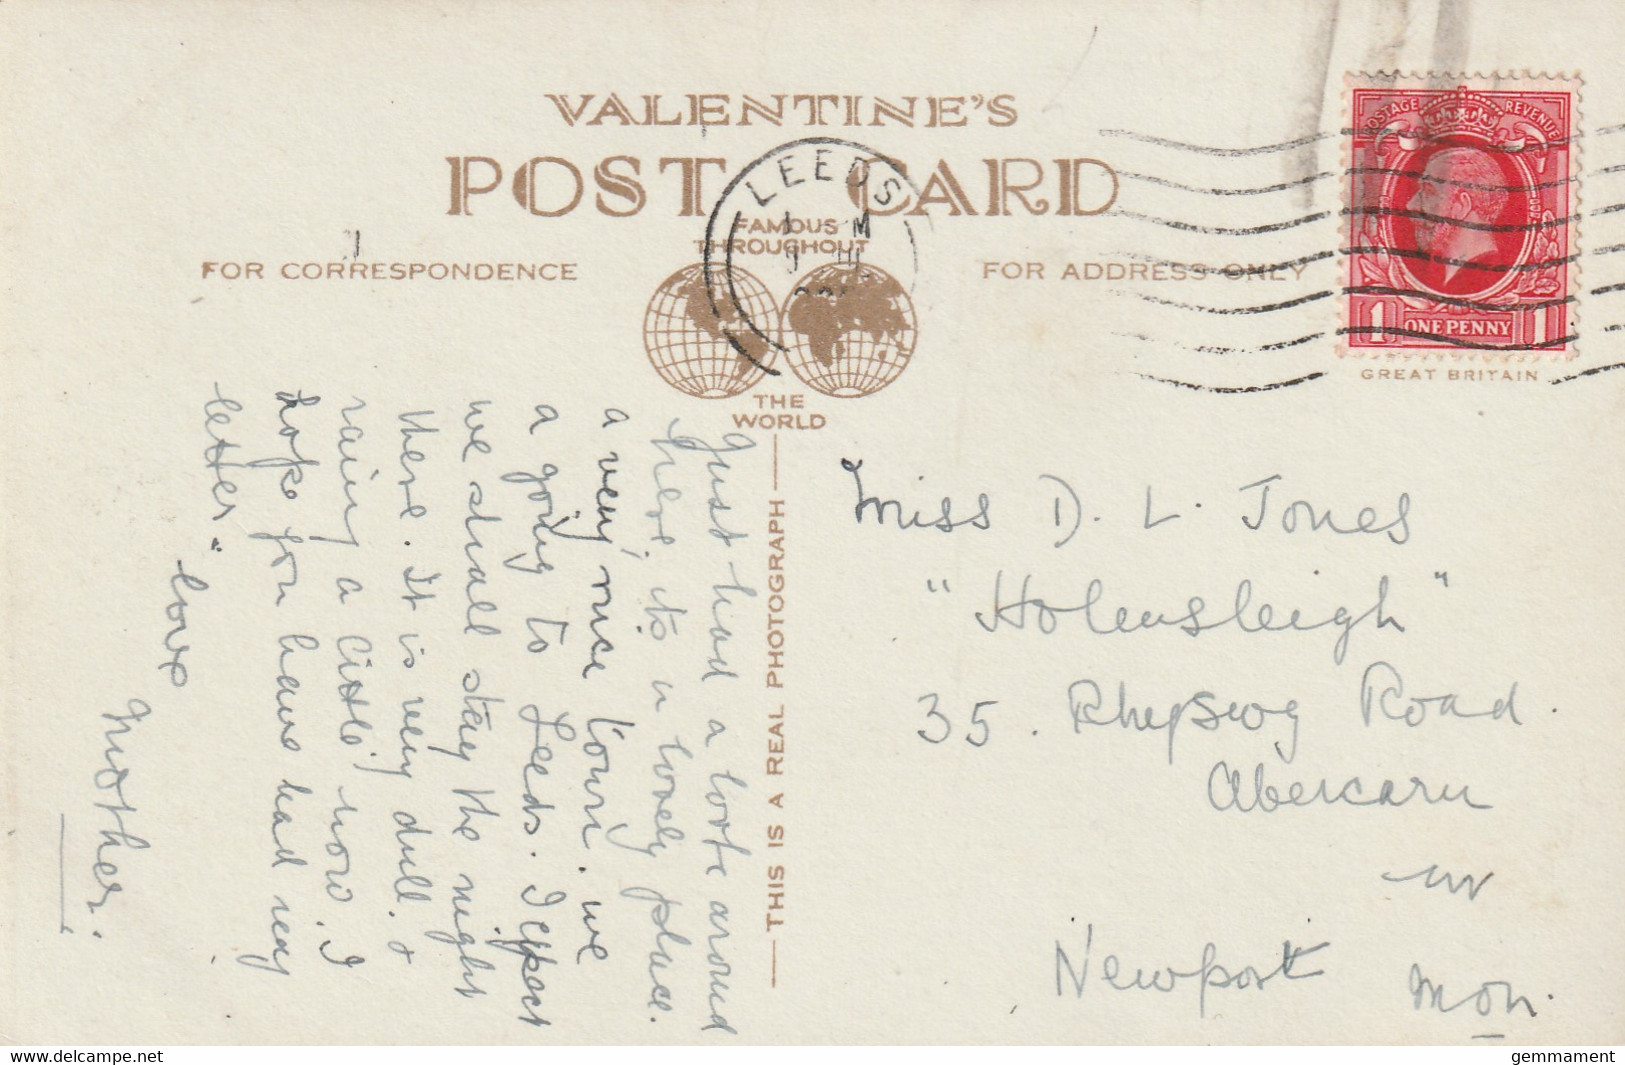 VALENTINE'S
POST CARD
FAMOUS
THROUGHOUT
THE
WORLD
FOR CORRESPONDENCE
FOR ADDRESS ONLY
THIS IS A REAL PHOTOGRAPH
LEEDS
POSTAGE REVENUE
1 ONE PENNY 1
GREAT BRITAIN
Just had a look around
here, its a lovely place.
a very nice town. we
a going to Leeds. I expect
we shall stay the night
there. It is very dull. &
raing a little now. I
hope you have had my
letter"
love
Mother.
Miss D. L. Jones
"Holmsleigh"
35. Road.
Abercarn
nr
Newport Mon.
gemmament
www.delcampe.net